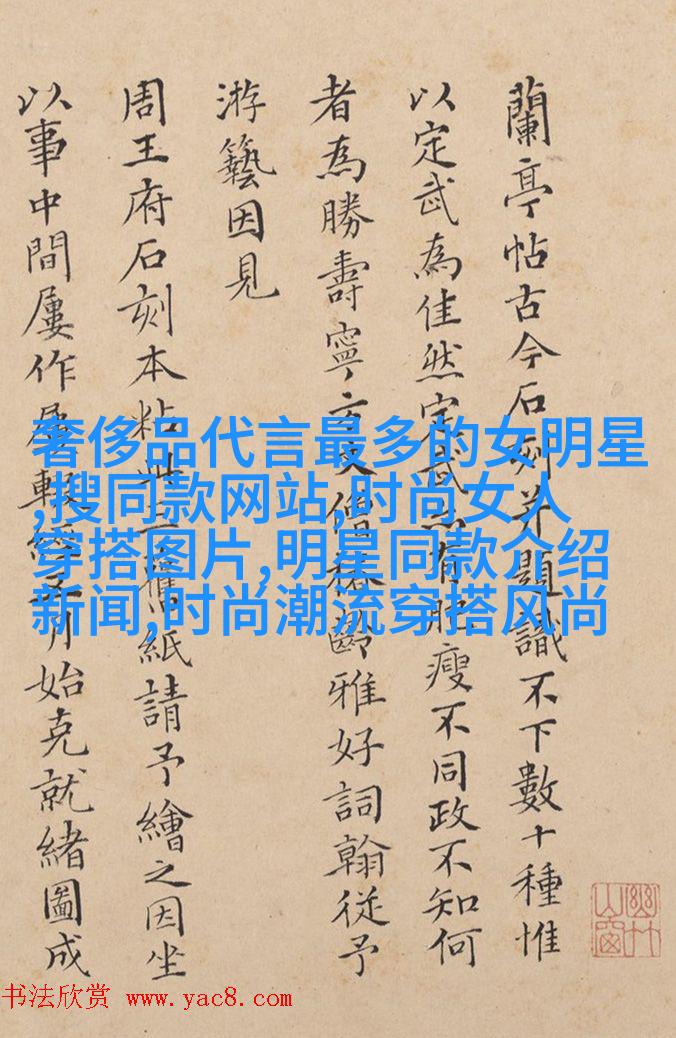 蘭亭帖古今石刻并題識不下數十種惟
以定武為佳然定武亦有肥瘦不同政不知何
者為勝壽寧方丈僧椿齡雅好詞翰從予
游藝因見
周王府石刻本粘此舊紙請予繪之因坐
以事中間屢作屢輟經五月始克就緒圖成
幽竹
山窗
奢侈品代言最多的女明星
,搜同款网站,时尚女人
穿搭图片,明星同款介绍
新闻,时尚潮流穿搭风尚
书法欣赏 www.yac8.com